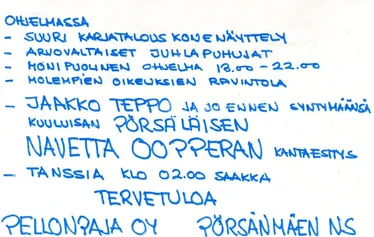 OHJELMASSA
- SUURI KARJATALOUSKONENÄYTTELY
- ARVOVALTAISET JUHLAPUHUJAT
- MONIPUOLINEN OHJELMA 18.00 - 22.00
- MOLEMPIEN OIKEUKSIEN RAVINTOLA
- JAAKKO TEPPO JA JO ENNEN SYNTYMÄÄNSÄ
KUULUISAN PÖRSÄLÄISEN
NAVETTA OOPPERAN KANTAESITYS
- TANSSIA KLO 02.00 SAAKKA
TERVETULOA
PELLONPAJA OY PÖRSÄNMÄEN NS